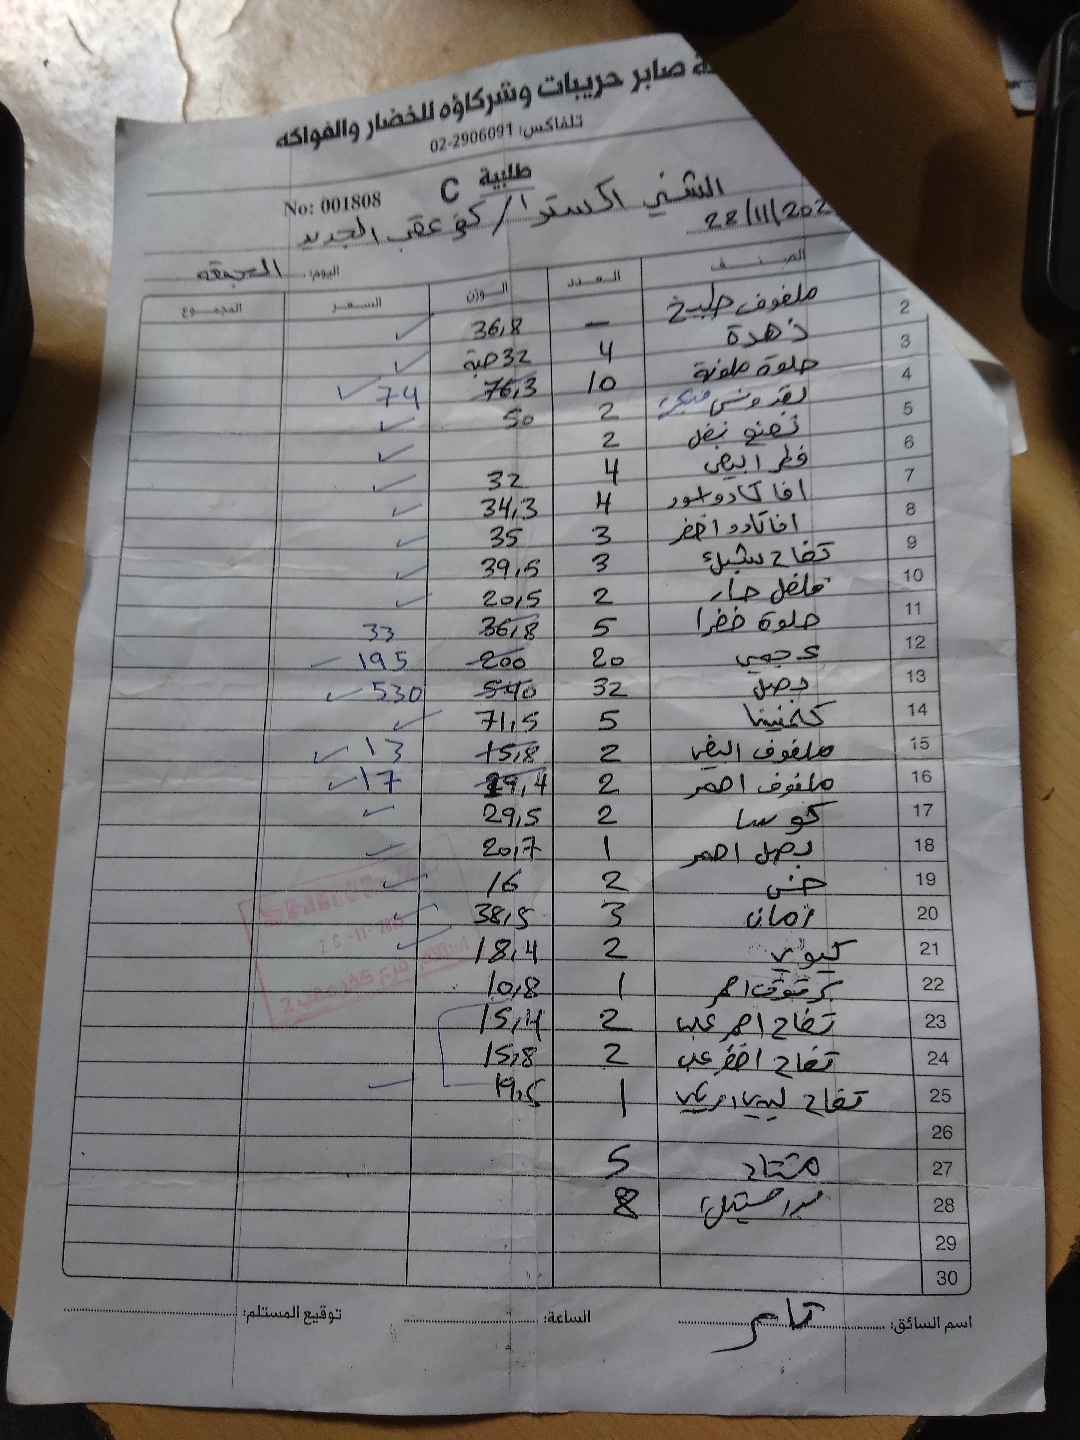 صابر حريبات وشركاؤه للخضار والفواكه
تلفاكس: 02-2906091
طلبية C
No: 001808
الشني اكسترا / كفر عقب الجديد
28/11/202
اليوم: الجمعة
الصنف العدد الوزن السعر المجموع
2 ملفوف طبيخ — 36,8
3 زهرة 4 32 حبة
4 حلوة ملونة 10 76,3 74
5 بقدونس 2 50
6 نعنع 2
7 فطر ابيض 4 32
8 افاكادو 4 34,3
9 افاكادو اخضر 3 35
10 تفاح 3 39,5
فلفل حار 2 20,5
11 حلوة خضرا 5 36,8 33
12 عجمي 20 200 195
13 بصل 32 540 530
14 كلمنتينا 5 71,5
15 ملفوف ابيض 2 15,8 13
16 ملفوف احمر 2 19,4 17
17 كوسا 2 29,5
18 بصل احمر 1 20,7
19 خس 2 16
20 رمان 3 38,5
21 كيوي 2 18,4
22 برقوق احمر 1 10,8
23 تفاح احمر علب 2 15,4
24 تفاح اخضر علب 2 15,8
25 تفاح 1 19,5
26
27 مشتاح 5
28 8
29
30
اسم السائق: تامر الساعة: توقيع المستلم: